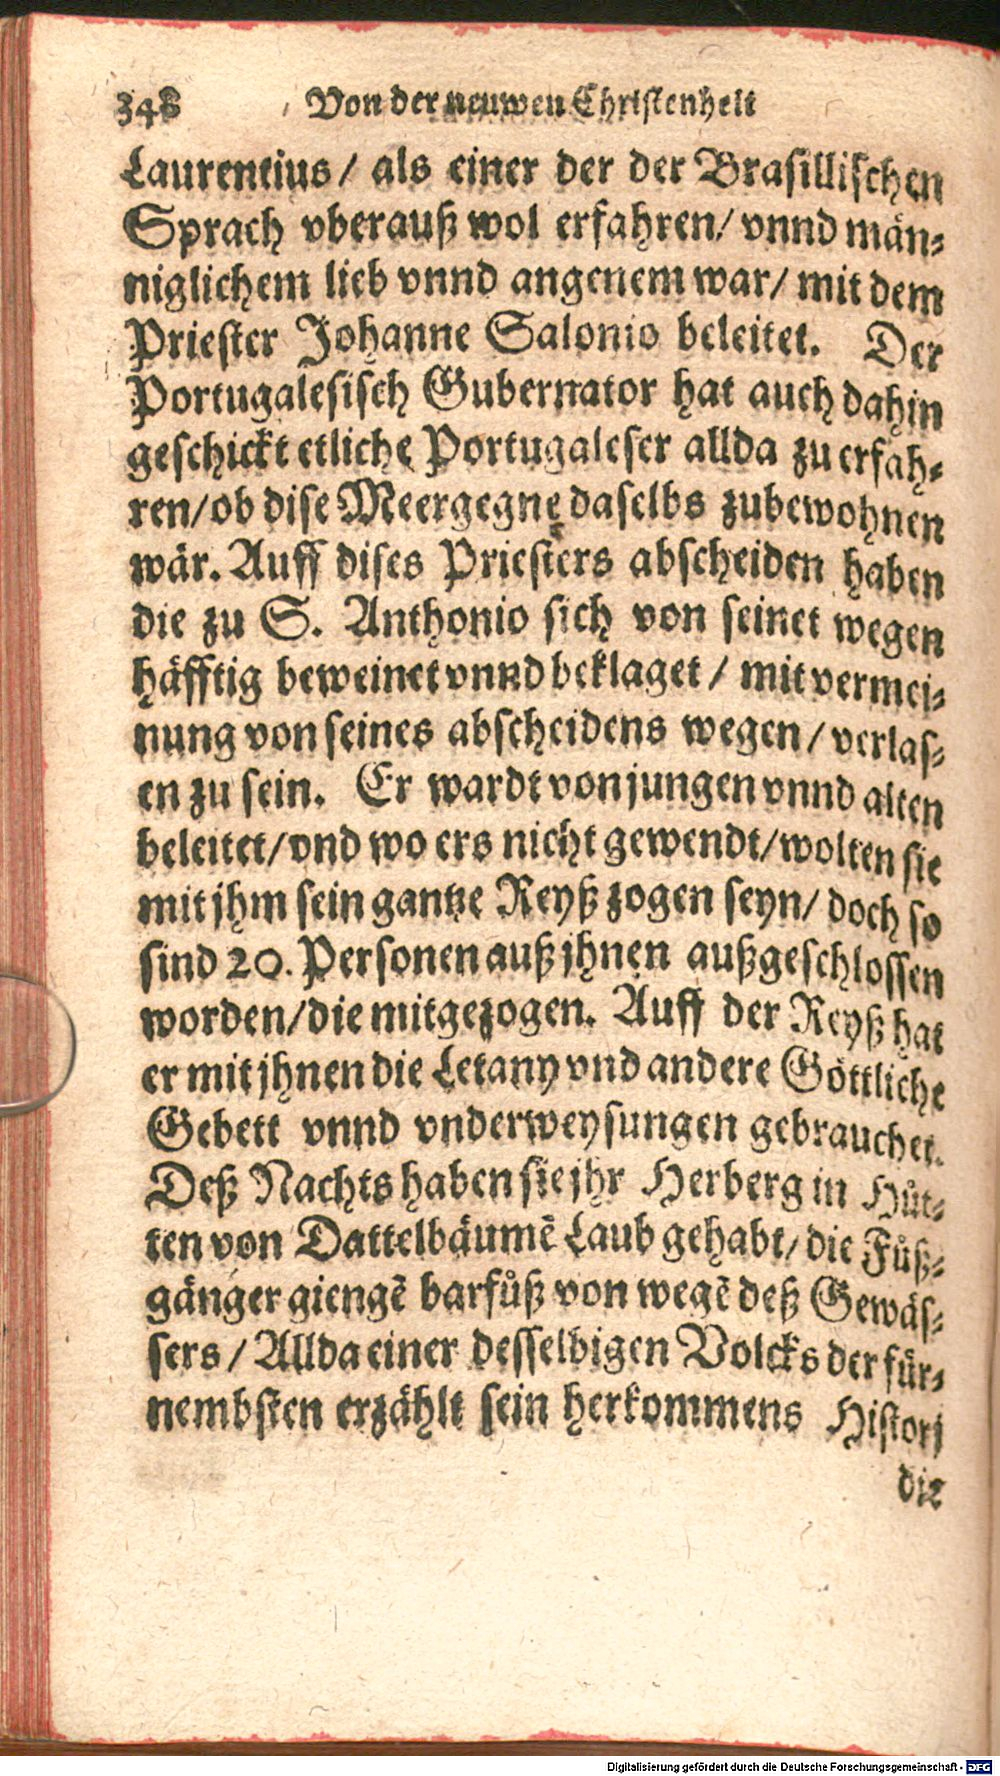 348 Von der neuwen Christenheit
Laurentius / als einer der der Brasillischen
Sprach vberauß wol erfahren / vnnd män-
niglichem lieb vnnd angenem war / mit dem
Priester Johanne Salonio beleitet. Der
Portugalesisch Gubernator hat auch dahin
geschickt etliche Portugaleser allda zu erfah-
ren / ob dise Meergegne daselbs zubewohnen
wär. Auff dises Priesters abscheiden haben
die zu S. Anthonio sich von seinet wegen
häfftig beweinet vnnd beklaget / mit vermei-
nung von seines abscheidens wegen / verlas-
en zu sein. Er wardt von jungen vnnd alten
beleitet / vnd wo ers nicht gewendt / wolten sie
mit jhm sein gantze Reyß zogen seyn / doch so
sind 20. Personen auß jhnen außgeschlossen
worden / die mitgezogen. Auff der Reyß hat
er mit jhnen die Letany vnd andere Göttliche
Gebett vnnd vnderweysungen gebrauchet.
Deß Nachts haben sie jhr Herberg in Hůt-
ten von Dattelbäumē Laub gehabt / die Fůß-
gänger giengē barfůß von wegē deß Gewäs-
sers / Allda einer desselbigen Volcks der für-
nembsten erzählt sein herkommens Histori
die
Digitalisierung gefördert durch die Deutsche Forschungsgemeinschaft - DFG